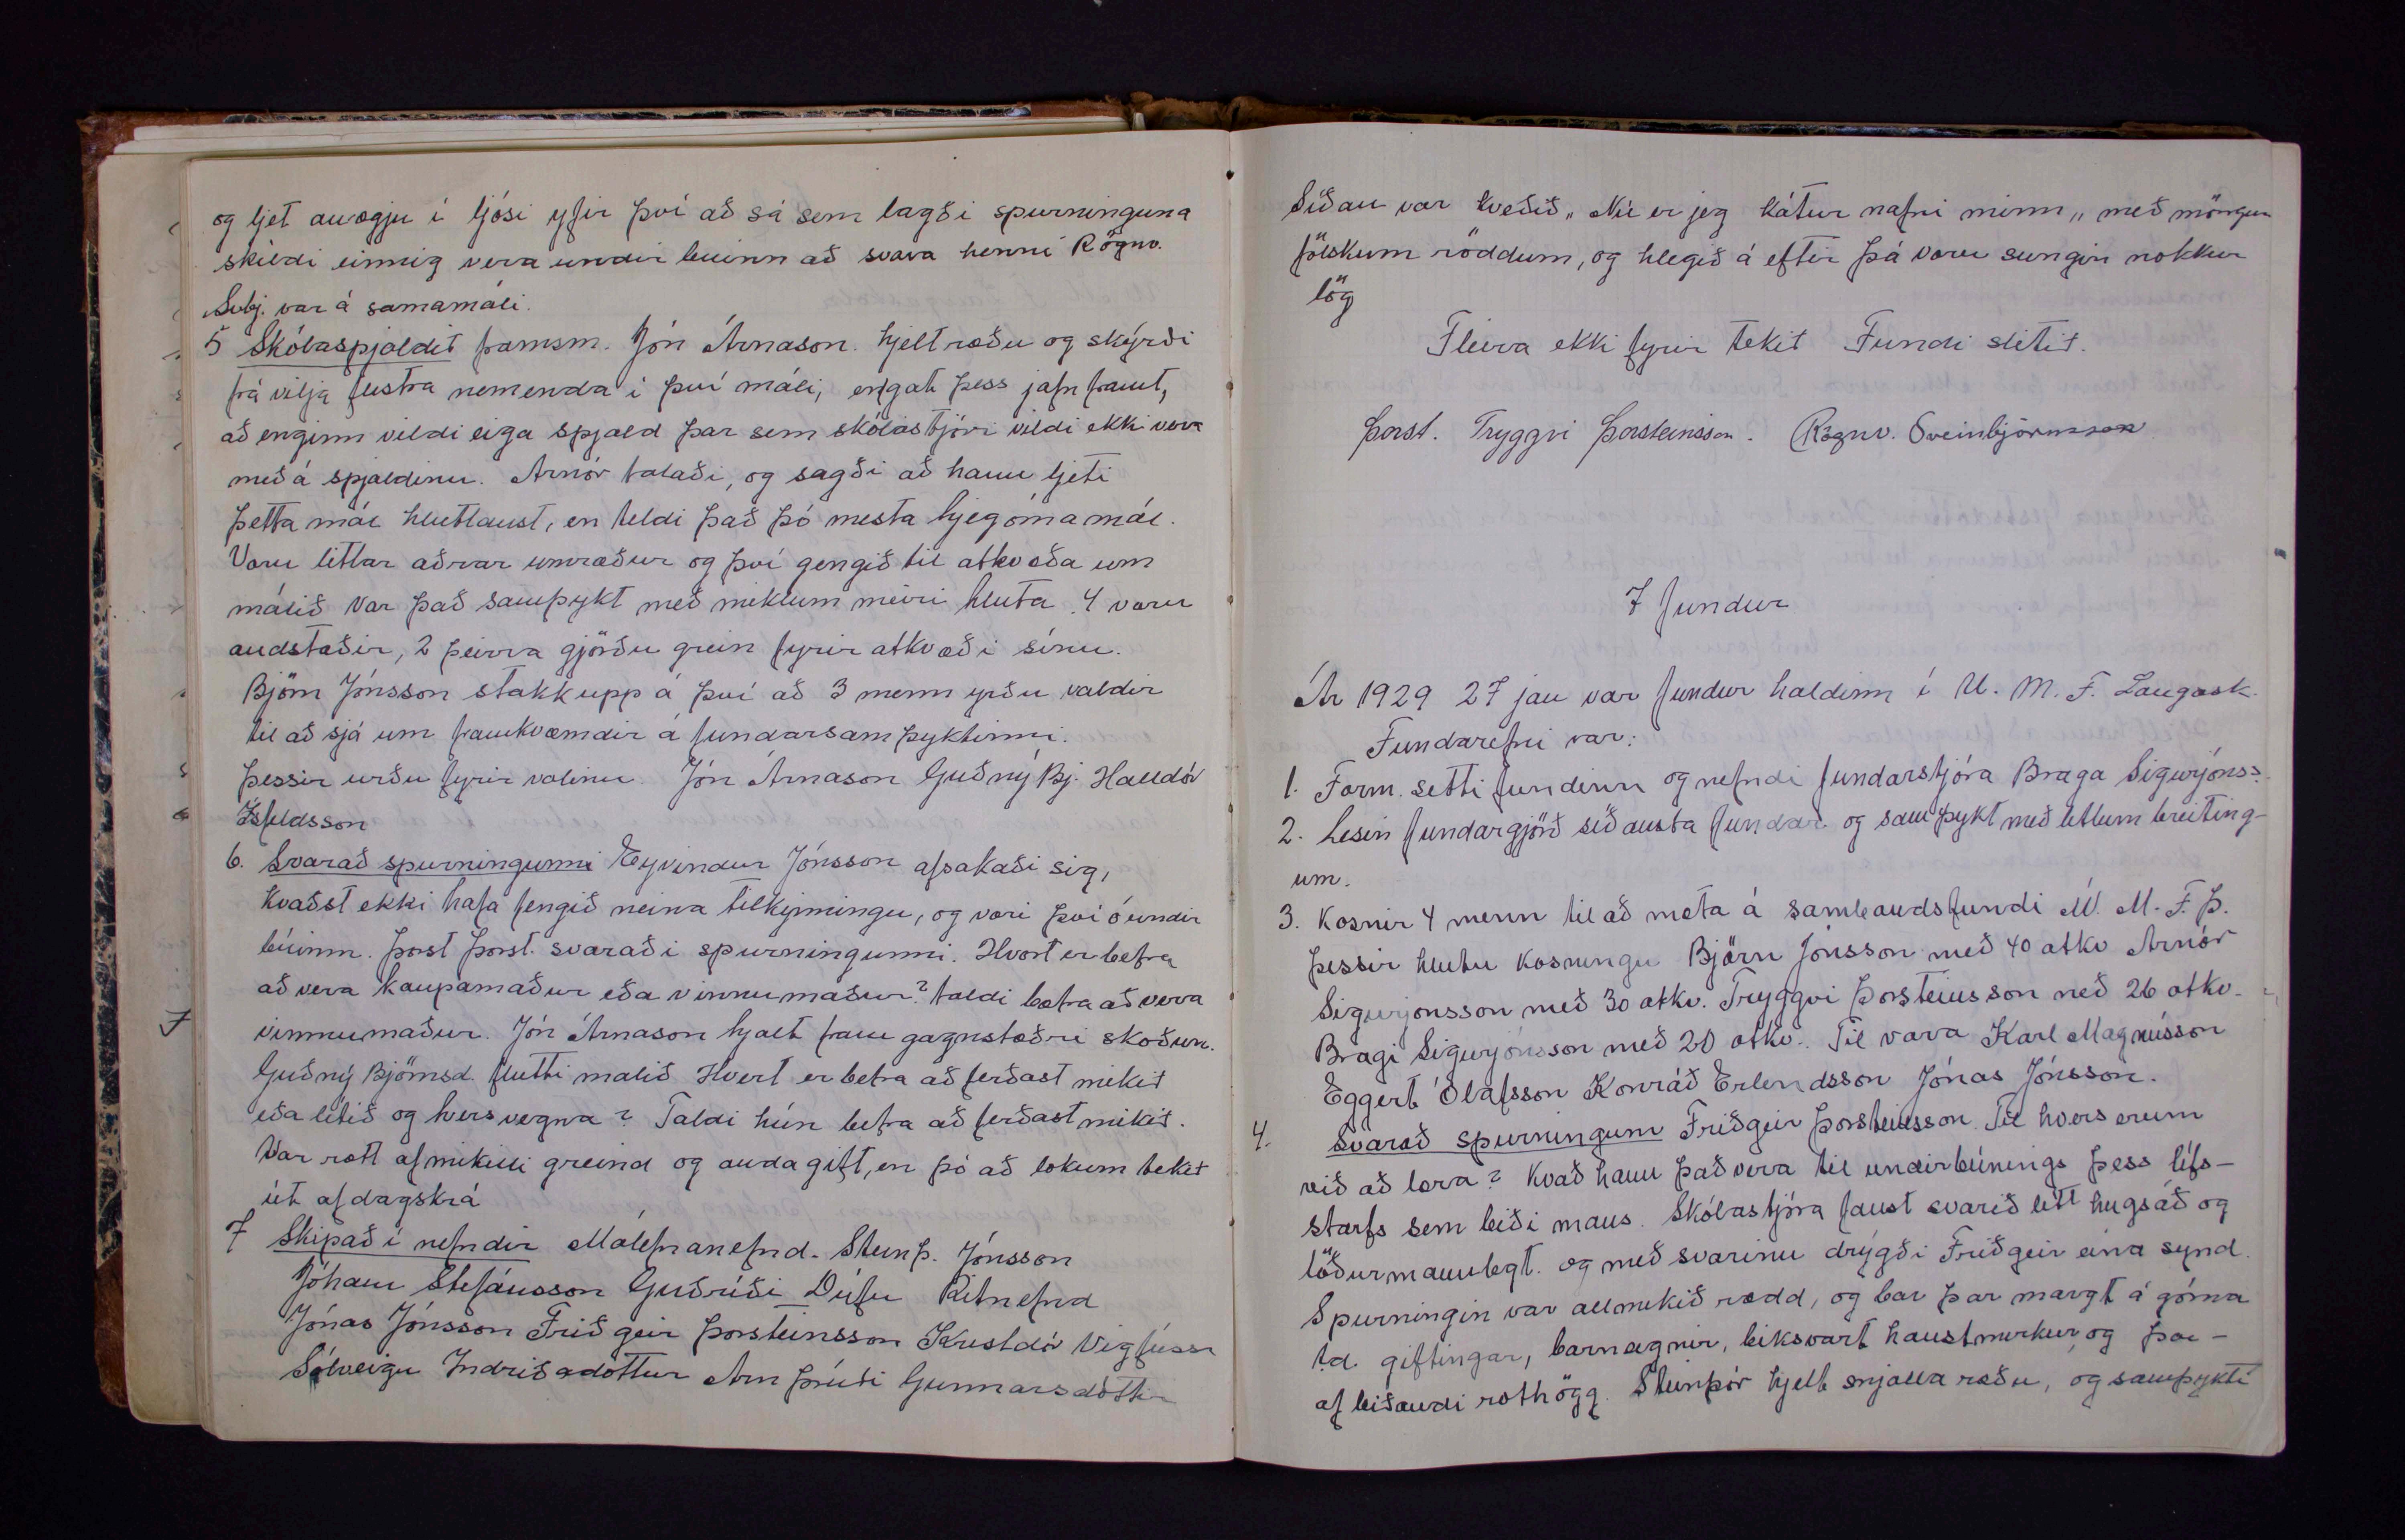 og ljet anægju í ljósi yfir því að sá sem lagði spurninguna
skildi einnig vera undir búinn að svara henni Rögnv.
Svbj. var á samamáli.
5 Skólaspjaldit framsm. Jón Árnason. hjelt ræðu og skýrði
frá vilja flestra nemenda í því máli, en gat þess jafn framt,
að enginn vildi eiga spjald þar sem skólastjóri vildi ekki vera
með á spjaldinu. Arnór talaði, og sagði að hann ljeti
þetta mál hlutlaust, en teldi það þó mesta hjegómamál.
Voru littlar aðrar umræður og því gengið til atkvæða um
málið var það samþykt með miklum meiri hluta. 4 voru
andstæðir, 2 þeirra gjörðu grein fyrir atkvæði sínu.
Björn Jónsson stakk upp á því að 3 menn yrðu valdir
til að sjá um framkvæmdir á fundarsamþyktinni.
Þessir urðu fyrir valinu. Jón Árnason Guðný Bj. Halldór
Ísfeldsson
6. Svarað spurningunni Eyvindur Jónsson afsakaði sig,
kvaðst ekki hafa fengið neina tilkynningu, og væri því óundir
búinn. Þorst Þorst. svaraði spurningunni. Hvort er betra
að vera kaupamaður eða vinnumaður? taldi betra að vera
vinnumaður. Jón Árnason hjalt fram gagnstæðri skoðun.
Guðný Björnsd. flutti malið Hvert er betra að ferðast mikit
eða lítið og hvers vegna? Taldi hún betra að ferðast mikit.
Var rætt af mikilli greind og andagift, en þó að lokum tekit
út af dagskrá
7 Skipað í nefndir Málefnanefnd. Steinþ. Jónsson
Jóhann Stefánsson Guðríði Dúfu Ritnefnd
Jónas Jónsson Friðgeir Þorsteinsson Kristdór Vigfúss
Sólveigu Indriðadóttur Arnþrúði Gunnarsdóttir
Síðan var kveðið „Nú er jeg kátur nafni minn„ með mörgum
fölskum röddum, og hlegið á eftir þá voru sungin nokkur
lög
Fleira ekki fyrir tekit Fundi slitit.
Þorst. Tryggvi Þorsteinsson. Rögnv. Sveinbjörnsson
7 fundur
Ár 1929 27 jan var fundur haldinn í U. M. F. Laugask.
Fundarefni var:
1. Form. setti fundinn og nefndi fundarstjóra Braga Sigurjónss.
2. Lesin fundargjörð síðausta fundar og samþykt með litlum breiting-
um.
3. Kosnir 4 menn til að mæta á sambandsfundi U. M. F. Þ.
Þessir hlutu kosningu Björn Jónsson með 40 atkv Arnór
Sigurjonsson með 30 atkv. Tryggvi Þorsteinsson neð 26 atkv.
Bragi Sigurjónsson með 20 atkv. Til vara Karl Magnússon
Eggert Ólafsson Konráð Erlendsson Jónas Jónsson.
4. Svarað spurningum Friðgeir Þorsteinsson. Til hvers erum
við að læra? Kvað hann það vera til undirbúnings þess lífs-
starfs sem biði maus. Skólastjóra fanst svarið létt hugsáð og
löðurmannlegt. og með svarinu drýgði Friðgeir eina synd.
Spurningin var allmikið rædd, og bar þar margt á góma
t.d. giftingar, barnagnir, biksvart haustmirkur, og þar-
af leiðandi rothögg. Steinþór hjelt snjalla ræðu, og samþykti